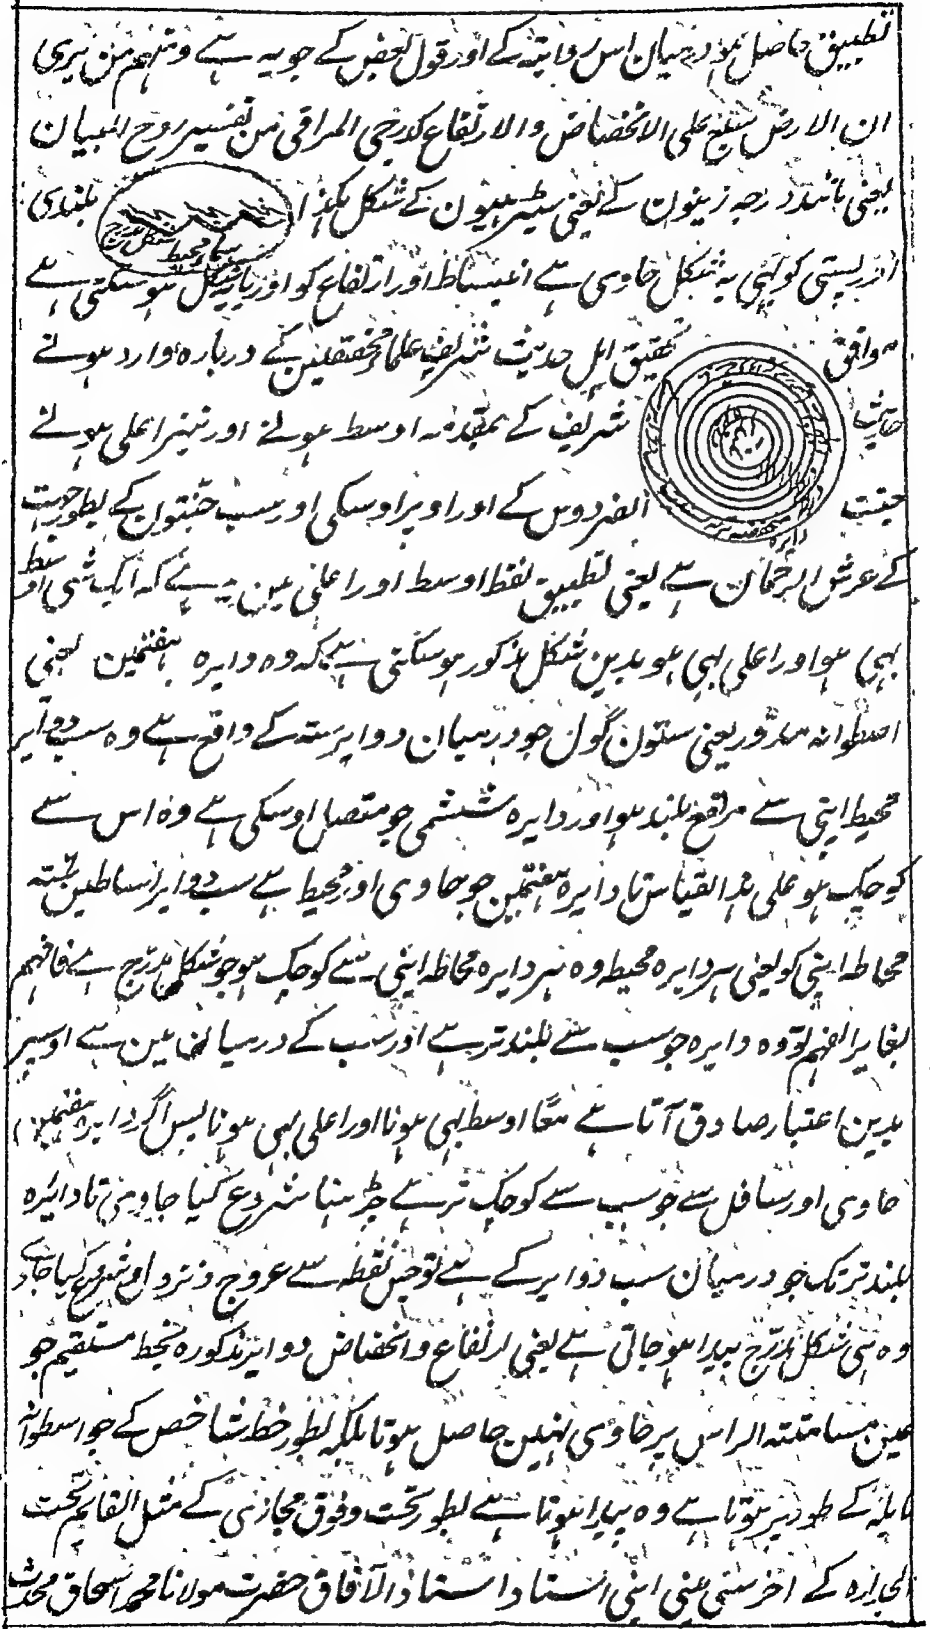 تطبیق حاصل ہو درمیان اس روایتہ کے اور قول بعض کے جو یہ ہے ومنہم من یری
ان الارض سبع علی الانخفاض والارتفاع کدرجی المراقی من تفسیر روح البیان
یعنی مانند درجہ زینون کے یعنی سیڑہیون کے شکل ہکذا بلندی
اور پستی کو لیتی یہ شکل حاوی ہے انبساط اور ارتفاع کو اور یا یہ شکل ہو سکتی ہے
موافق تحقیق اہل حدیث شریف علماء محققین کے دربارہ وارد ہونے
حدیث شریف کے بمقدمہ اوسط ہونے اور نیز اعلی ہونے
جنت الفردوس کے اور اوپر اوسکی اور سب جنتون کے بطور چہت
کے عرش الرحمان ہے یعنی تطبیق لفظ اوسط اور اعلی مین یہ ہے کہ ایک شی اوسط
بہی ہو اور اعلی بہی ہو بدین شکل مذکور ہو سکتی ہے کہ وہ دایرہ ہفتمین یعنی
اصطوانہ مدور یعنی ستون گول جو درمیان دوایر ستہ کے واقع ہے وہ سب دوایر
محیط اپنی سے مرتفع بلند ہو اور دایرہ ششمی جو متصل اوسکی ہے وہ اس سے
کوچک ہو علی ہذا القیاس تا دایرہ ہفتمین جو حاوی اور محیط ہے سب دوایر اساطین ستہ
محاطہ اپنی کو یعنی ہر دایرہ محیطہ وہ ہر دایرہ محاطہ اپنی سے کوچک ہو جو شکل مدرج ہے فافہم
بغایر الفہم تو وہ دایرہ جو سب سے بلند تر ہے اور سب کے درمیان مین ہے اوسپر
بدین اعتبار صادق آتا ہے معاً اوسط بہی ہونا اور اعلی بہی ہونا پس اگر دایرہ ہفتمین
حاوی اور سافل سے جو سب سے کوچک تر ہے چڑہنا شروع کیا جاوی تا دائرہ
بلند تر تک جو درمیان سب دوایر کے ہے تو جس نقطہ سے عروج و نزول شروع کیا جاوے
وہ ہی شکل مدرج پیدا ہو جاتی ہے یعنی ارتفاع و انخفاض دوایر مذکورہ بخط مستقیم جو
مین مسامتتہ الراس پر حاوی نہین حاصل ہوتا بلکہ بطور خط شاخص کے جو اسطوانہ
مایلہ کے طور پر ہوتا ہے وہ پیدا ہوتا ہے بطور تحت و فوق مجازی کے مثل القایم تحت
الجدارہ کے اخر سنی عنی اپنی استاد استاذ الآفاق حضرت مولانا محمد اسحاق محدث